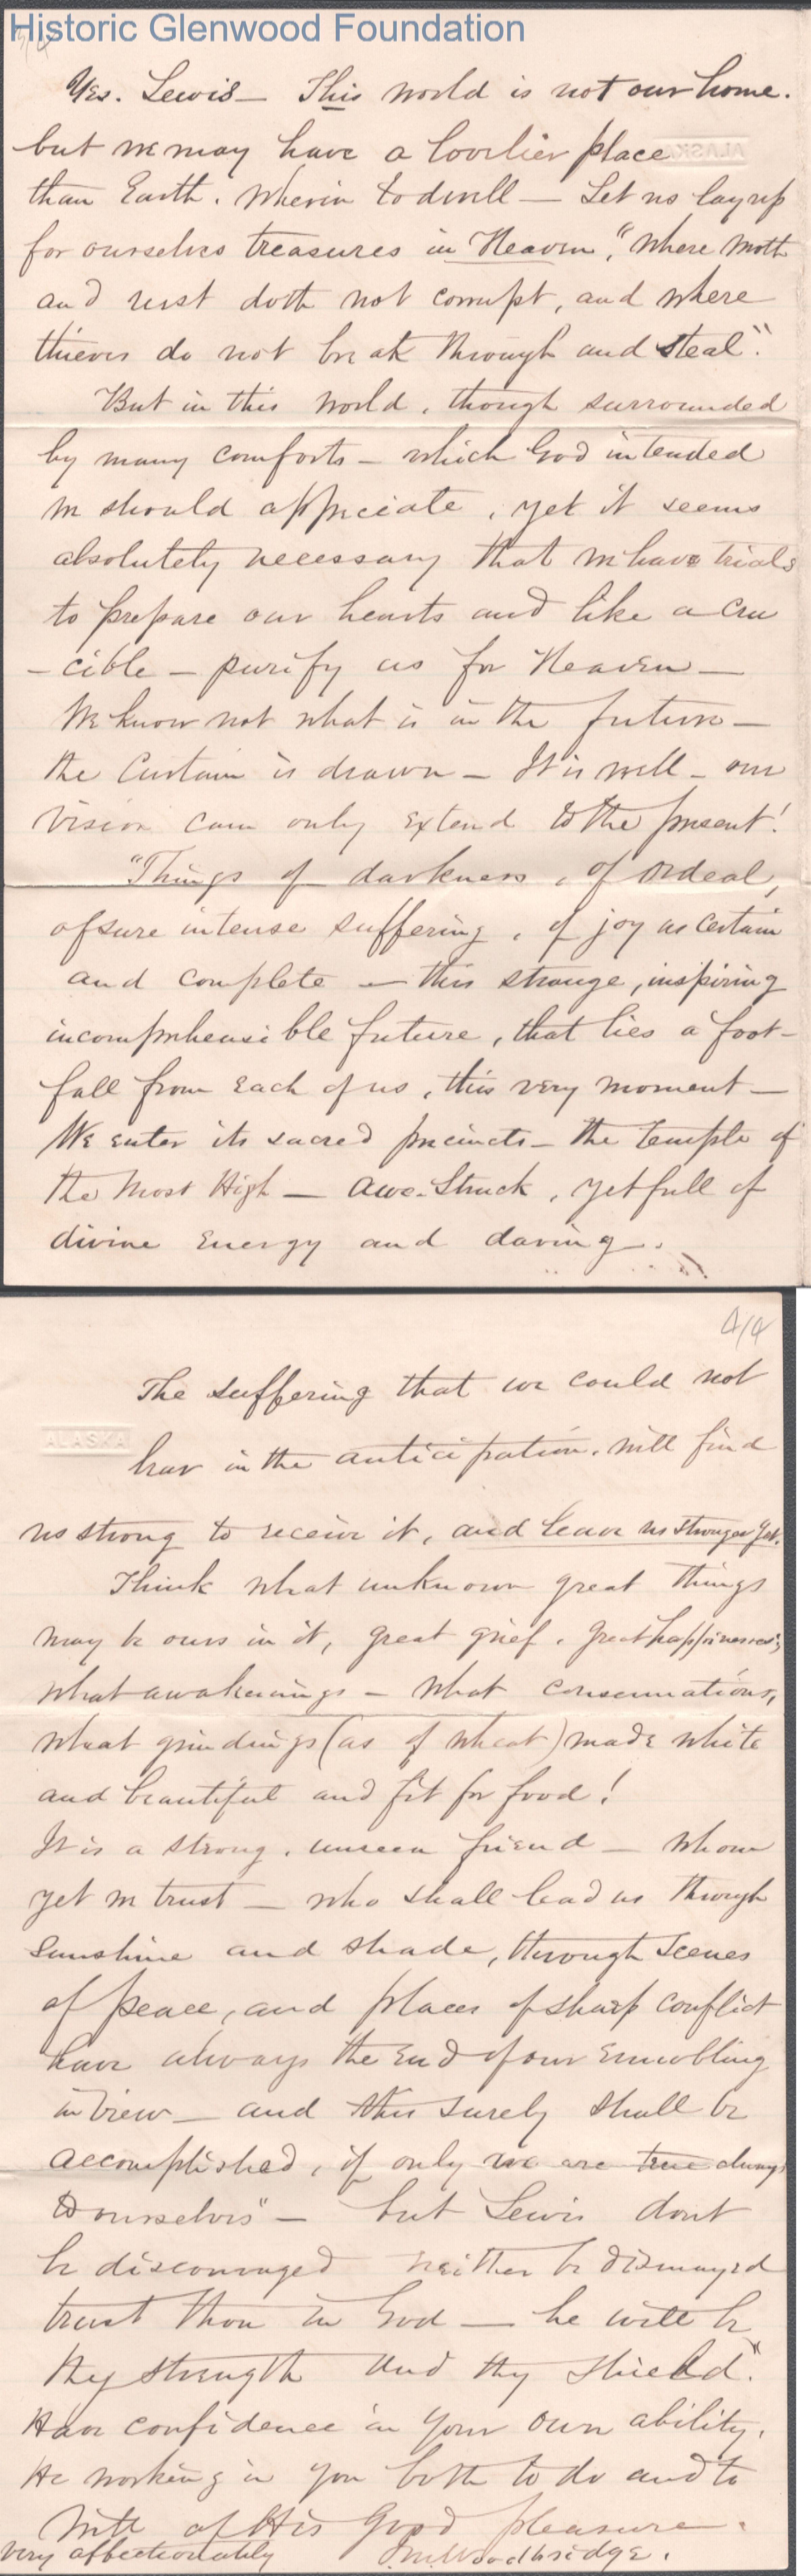 Historic Glenwood Foundation
Yes. Lewis — This world is not our home.
but we may have a lovelier place
ALASKA
than Earth. Wherein to dwell — Let us lay up
for ourselves treasures in Heaven, "where moth
and rust doth not corrupt, and where
thieves do not break through and steal".
But in this world, though surrounded
by many comforts — which God intended
we should appreciate, yet it seems
absolutely necessary that we have trials
to prepare our hearts and like a cru
- cible — purify us for Heaven —
We know not what is in the future —
the Curtain is drawn — It is well — our
vision can only extend to the present!
"Things of darkness, of ordeal,
of sure intense suffering, of joy as certain
and complete — this strange, inspiring
incomprehensible future, that lies a foot-
fall from each of us, this very moment —
We enter its sacred precincts — the temple of
the Most High — awe-struck, yet full of
divine energy and daring.
4/4
The suffering that we could not
ALASKA
bear in the anticipation, will find
us strong to receive it, and leave us stronger yet.
Think what unknown great things
may be ours in it, great grief, great happinesses;
what awakenings — what consecrations,
what grindings (as of wheat) made white
and beautiful and fit for food!
It is a strong, unseen friend — whom
yet we trust — who shall lead us through
sunshine and shade, through scenes
of peace, and places of sharp conflict
have always the end of our ennobling
in view — and this surely shall be
accomplished, if only we are true always
to ourselves" — but Lewis dont
be discouraged neither be dismayed
trust thou in God — he will be
thy strength and thy shield".
Have confidence in your own ability.
He working in you both to do and to
will of His good pleasure.
Very affectionately Woodbridge.